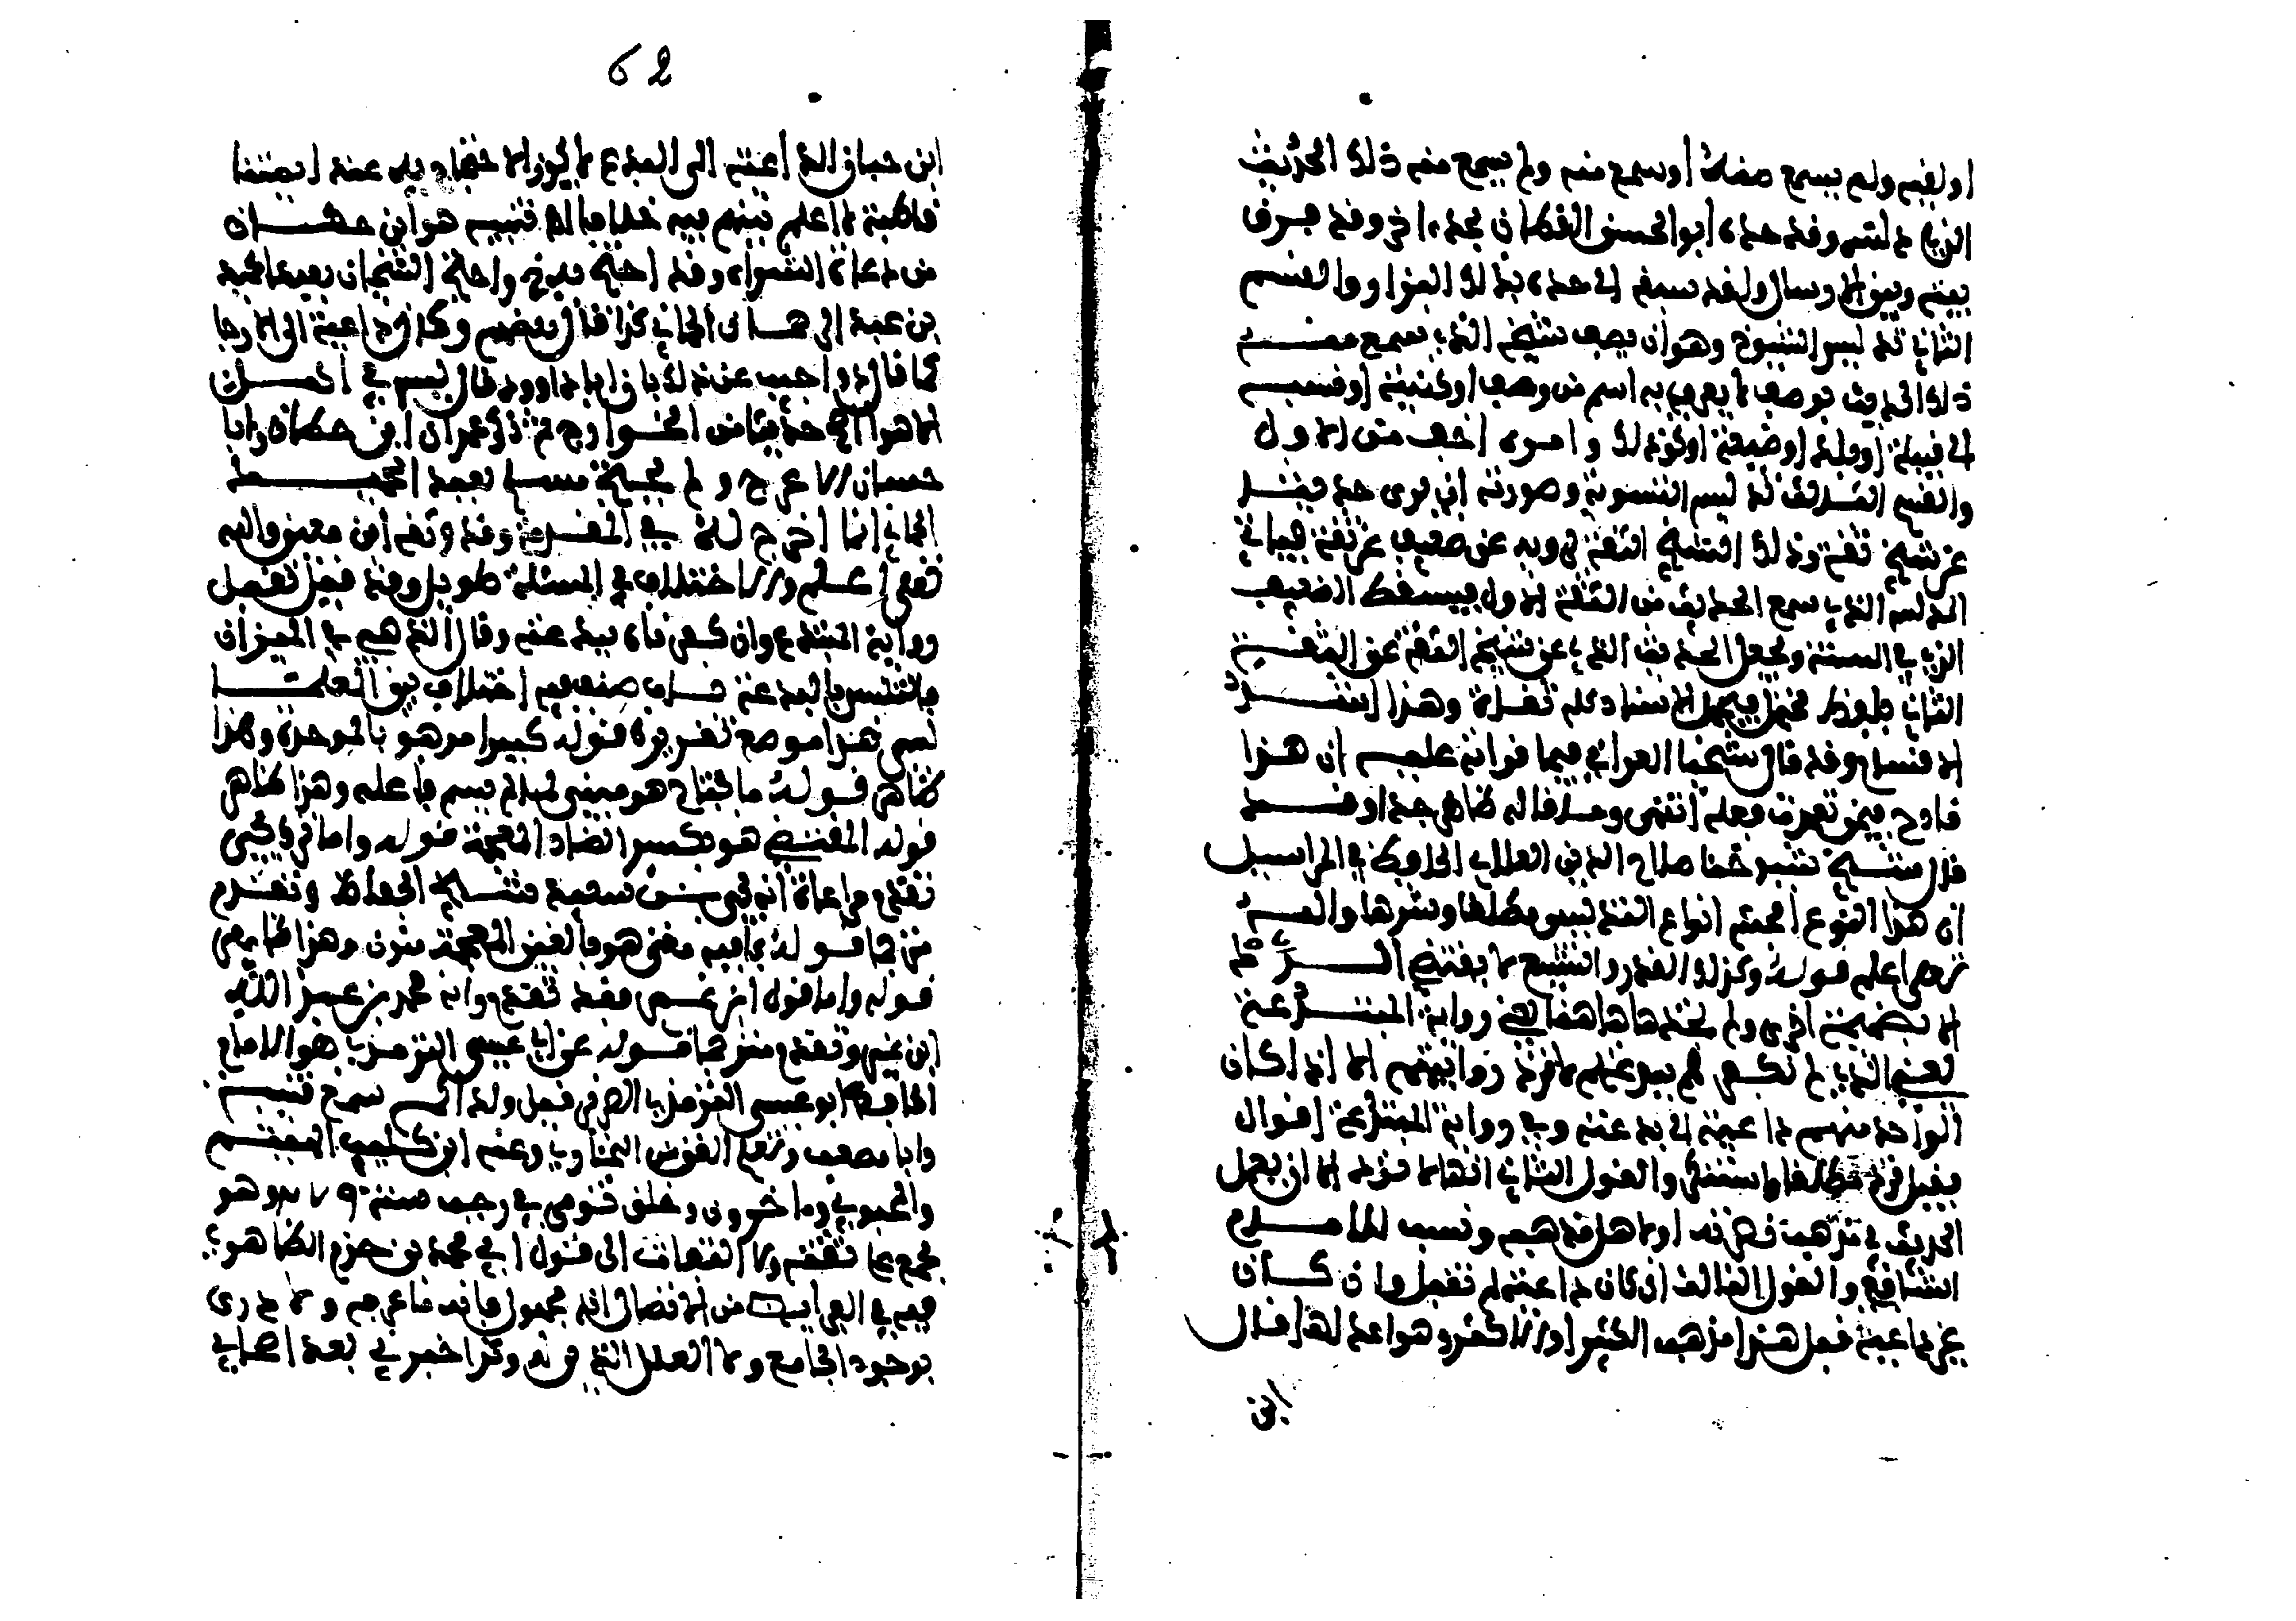 او لقيه ولم يسمع منه او سمع منه ولم يسمع منه ذلك الحديث
الذي دلسه وقد حده ابو الحسن القطان بحده اخر وقد فرق
بينه وبين الارسال ولقد سبقه الى حده بذلك البزار والقسم
الثاني تدليس الشيوخ وهو ان يصف شيخه الذي سمع منه
ذلك الحديث بوصف لا يعرف به اسم من وصف او كنية او نسبة
الى قبيلة او بلد او ضيعة او نحو ذلك وامره اخف من الاول
والقسم الثالث تدليس التسوية وصورته ان يروى حديثا
عن شيخ ثقة وذلك الشيخ الثقة يرويه عن ضعيف عن ثقة فياتي
المدلس الذي سمع الحديث من الثقة الاول فيسقط الضعيف
الذي في السند ويجعل الحديث الذي عن شيخه الثقة عن الثقة
الثاني بلفظ محتمل فيصير الاسناد كله ثقات وهذا اشد
الاقسام وقد قال شيخنا العراقي فيما قراته عليه ان هذا
قادح فيمن تعمد فعله انتهى وما قاله ظاهر جدا وقد
قال شيخ شيوخنا صلاح الدين العلاي الحافظ في المراسيل
ان هذا النوع افحش انواع التدليس مطلقا وشرها والله
تعالى اعلم قوله وكذلك القدر والتشيع لا يقتضي الرد
الا بضميمة اخرى ولم نجدها هاهنا يعني رواية المبتدعة
يعني الذي لم نكفرهم ببدعتهم لا ترد روايتهم الا اذا كان
الواحد منهم داعية الى بدعته وفي رواية المبتدعة اقوال
فقيل ترد مطلقا والقول الثاني انها لا ترد الا ان يحمل
الحديث في مذهب نصرته او لاهل مذهبه ونسب للامام
الشافعي والقول الثالث ان كان داعية لم تقبل وان كان
غير داعية قبل هذا مذهب الكثير او الاكثر وهو اعدلها قال
ابن
62
ابن حبان الداعية الى البدع لا يجوز الاحتجاج به عند ائمتنا
قاطبة لا اعلم بينهم فيه خلافا تنبيه هو ابن حطان
من دعاة الشراة وقد احتج به خ واحتج الشيخان بعبد الحميد
بن عبد الرحمان الحماني كذا قال بعضهم وكان داعية الى الارجا
كما قال د واجيب عن ذلك بان ابا داوود قال ليس في
الاهوا اصح حديثا من الخوارج ثم ذكر عمران ابن حطان وابا
حسان الاعرج ولم يحتج مسلم بعبد الحميد
الحماني انما اخرج له في المقدمة وقد وثقه ابن معين والله
تعالى اعلم والاختلاف في المسئلة طويل وقد قيل تقبل
رواية المبتدع وان كفرناه ببدعته وقال الذهبي في الميزان
فالتلبس بالبدعة باب صعب فيه اختلاف بين العلما
ليس هذا موضع تقريره قوله كبير امر هو بالموحدة وهذا
ظاهر قوله ما يحتاج هو مبني لما لم يسم فاعله وهذا ظاهر
قوله المقتضي هو بكسر الضاد المعجمة قوله واما يحيى
تقدم مراعاة انه يحيى بن سعيد شيخ الحفاظ وتقدم
مترجما قوله ما فيه مغنى هو بالغين المعجمة منون وهذا ظاهر
قوله واما قول ابن نمير فقد تقدم وانه محمد بن عبد الله
ابن نمير وتقدم مترجما قوله عن ابي عيسى الترمذي هو الامام
الحافظ ابو عيسى الترمذي الضرير قيل ولد اكمه سمع قتيبة
وابا مصعب وعنه ابن كليب الهيثم
والمحبوبي واخرون وخلق توفي في رجب سنة ٢٧٩ وهو
مجمع على ثقته ولا التفات الى قول ابي محمد بن حزم الظاهري
فيه في الفرايض من الاتصال انه مجهول فانه ما عرفه ولا درى
بوجود الجامع ولا العلل الذي له قوله وذكر اخبرني بعد اصحابي